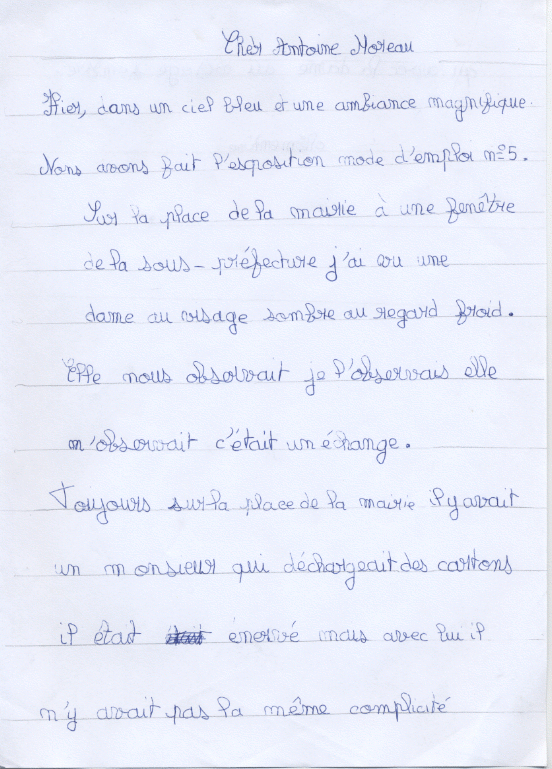 Cher Antoine Moreau
Hier, dans un ciel bleu et une ambiance magnifique.
Nous avons fait l'exposition mode d'emploi n°5.
Sur la place de la mairie à une fenêtre
de la sous-préfecture j'ai vu une
dame au visage sombre au regard froid.
Elle nous observait je l'observais elle
m'observait c'était un échange.
Toujours sur la place de la mairie il y avait
un monsieur qui déchargeait des cartons
il était énervé mais avec lui il
n'y avait pas la même complicité